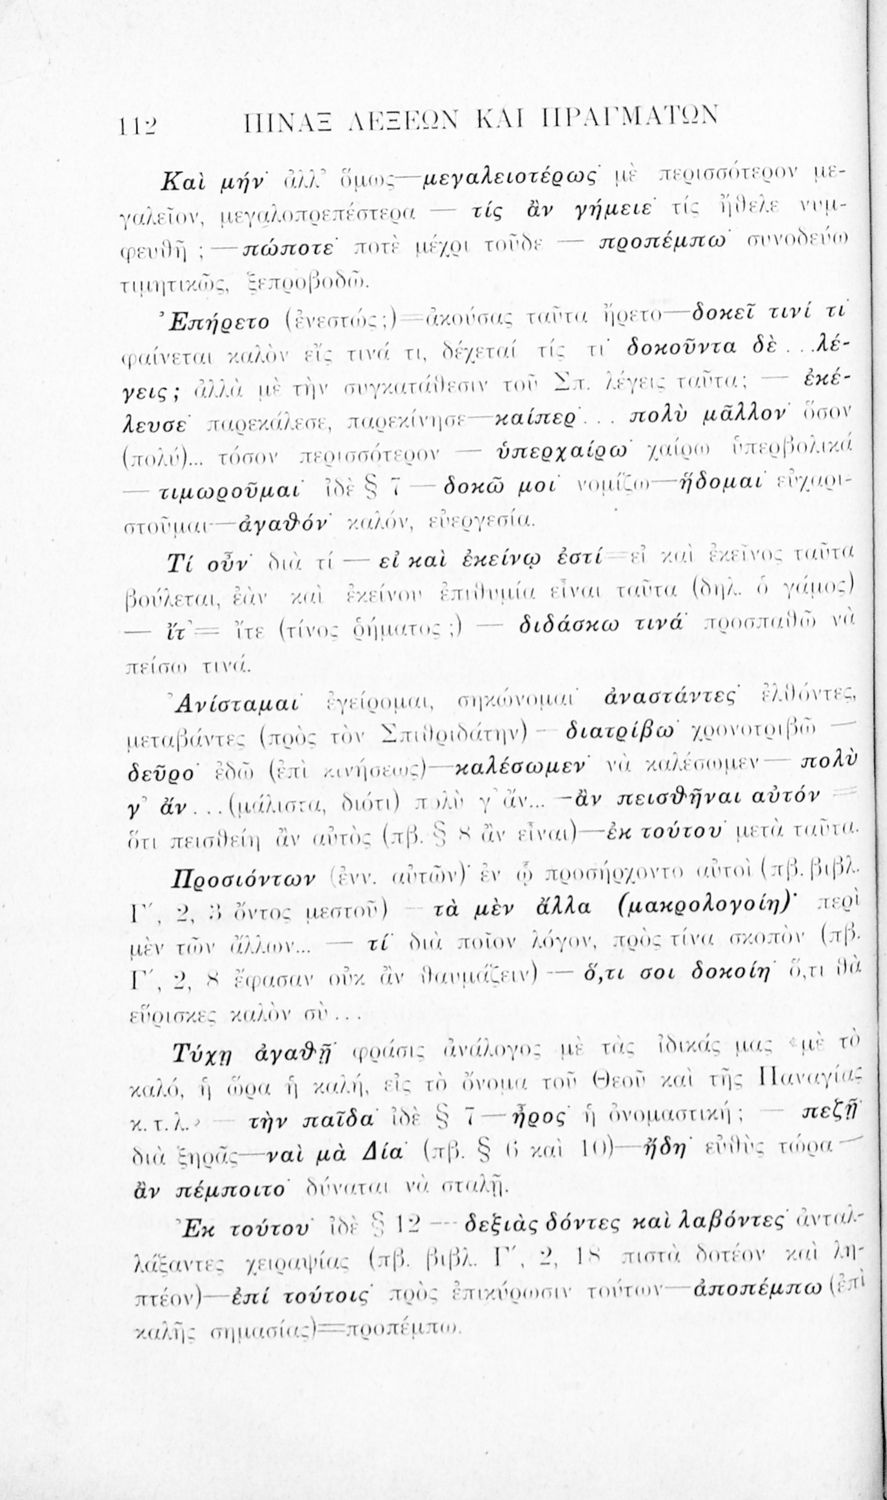 112 ΠΙΝΑΞ ΛΕΞΕΩΝ ΚΑΙ ΠΡΑΓΜΑΤΩΝ
Καὶ μήν˙ ἀλλ’ ὅμως—μεγαλειοτέρως˙ μὲ περισσότερον με-
γαλεῖον, μεγαλοπρεπέστερα — τίς ἂν γήμειε˙ τίς ἤθελε νυμ-
φευθῆ ; — πώποτε˙ ποτὲ μέχρι τοῦδε — προπέμπω˙ συνοδεύω
τιμητικῶς, ξεπροβοδῶ.
Ἐπήρετο (ἐνεστώς ;)=ἀκούσας ταῦτα ἤρετο—δοκεῖ τινί τι˙
φαίνεται καλὸν εἴς τινά τι, δέχεταί τίς τι˙ δοκοῦντα δὲ ...λέ-
γεις ; ἀλλὰ μὲ τὴν συγκατάθεσιν τοῦ Σπ. λέγεις ταῦτα; — ἐκέ-
λευσε˙ παρεκάλεσε, παρεκίνησε—καίπερ ... πολὺ μᾶλλον˙ ὅσον
(πολύ)... τόσον περισσότερον — ὑπερχαίρω˙ χαίρω ὑπερβολικά
— τιμωροῦμαι˙ ἰδὲ § 7 — δοκῶ μοι˙ νομίζω—ἥδομαι˙ εὐχαρι-
στοῦμαι—ἀγαθόν˙ καλόν, εὐεργεσία.
Τί οὖν˙ διὰ τί — εἰ καὶ ἐκείνῳ ἐστί=εἰ καὶ ἐκεῖνος ταῦτα
βούλεται, ἐὰν καὶ ἐκείνου ἐπιθυμία εἶναι ταῦτα (δηλ. ὁ γάμος)
— ἴτ’= ἴτε (τίνος ῥήματος ;) — διδάσκω τινά˙ προσπαθῶ νὰ
πείσω τινά.
Ἀνίσταμαι˙ ἐγείρομαι, σηκώνομαι˙ ἀναστάντες˙ ἐλθόντες,
μεταβάντες (πρὸς τὸν Σπιθριδάτην) — διατρίβω˙ χρονοτριβῶ —
δεῦρο˙ ἐδῶ (ἐπὶ κινήσεως)—καλέσωμεν˙ νὰ καλέσωμεν — πολὺ
γ’ ἄν ...(μάλιστα, διότι) πολὺ γ’ ἄν... —ἂν πεισθῆναι αὐτόν =
ὅτι πεισθείη ἂν αὐτὸς (πβ. § 8 ἂν εἶναι)—ἐκ τούτου˙ μετὰ ταῦτα.
Προσιόντων (ἐνν. αὐτῶν)˙ ἐν ᾧ προσήρχοντο αὐτοὶ (πβ. βιβλ.
Γ΄, 2, 3 ὄντος μεστοῦ) — τὰ μὲν ἄλλα (μακρολογοίη)˙ περὶ
μὲν τῶν ἄλλων... — τί˙ διὰ ποῖον λόγον, πρὸς τίνα σκοπὸν (πβ.
Γ΄, 2, 8 ἔφασαν οὐκ ἂν θαυμάζειν) — ὅ,τι σοι δοκοίη˙ ὅ,τι θὰ
εὕρισκες καλὸν σὺ ...
Τύχῃ ἀγαθῇ˙ φράσις ἀνάλογος μὲ τὰς ἰδικάς μας «μὲ τὸ
καλό, ἡ ὥρα ἡ καλή, εἰς τὸ ὄνομα τοῦ Θεοῦ καὶ τῆς Παναγίας
κ.τ.λ.» — τὴν παῖδα˙ ἰδὲ § 7 — ἦρος˙ ἡ ὀνομαστική ; — πεζῇ˙
διὰ ξηρᾶς—ναὶ μὰ Δία˙ (πβ. § 6 καὶ 10)—ἤδη˙ εὐθὺς τώρα—
ἂν πέμποιτο˙ δύναται νὰ σταλῇ.
Ἐκ τούτου˙ ἰδὲ § 12 — δεξιὰς δόντες καὶ λαβόντες˙ ἀνταλ-
λάξαντες χειραψίας (πβ. βιβλ. Γ΄, 2, 18 πιστὰ δοτέον καὶ λη-
πτέον)—ἐπί τούτοις˙ πρὸς ἐπικύρωσιν τούτων—ἀποπέμπω (ἐπὶ
καλῆς σημασίας)=προπέμπω.